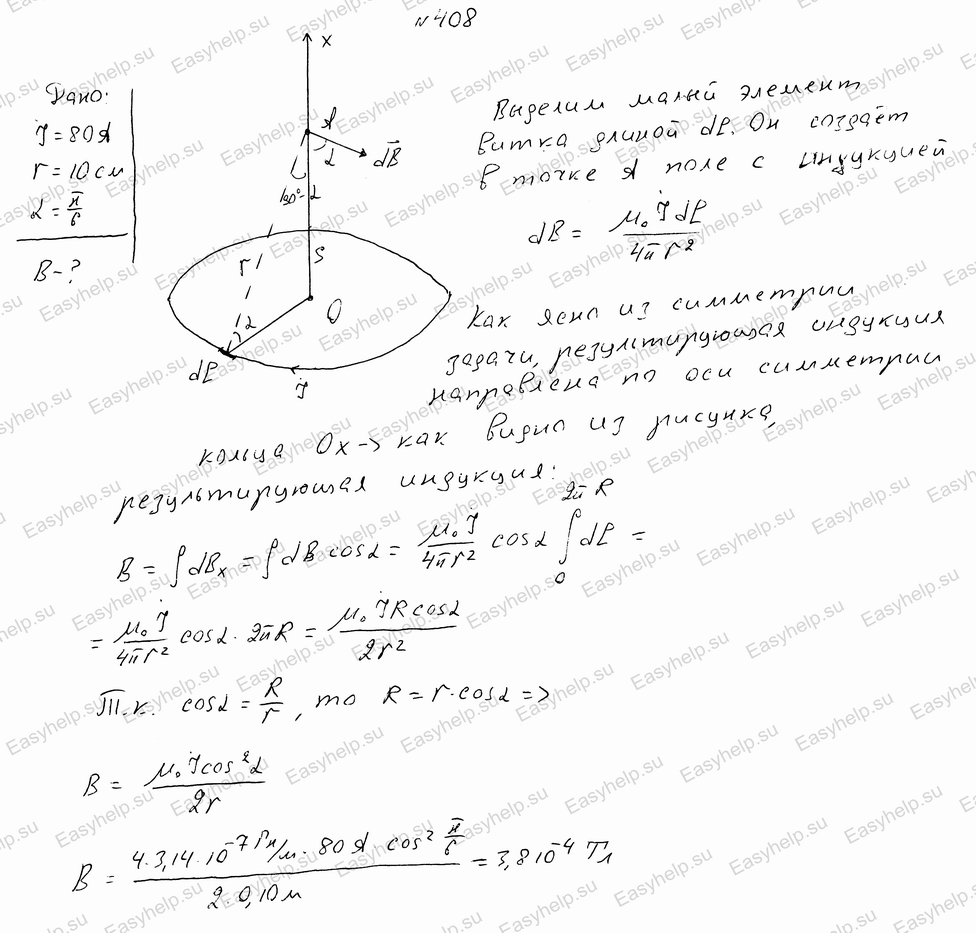 №408
Дано:
J = 80 А
r = 10 см
α = π/6
B - ?
x
A
dB̅
α
180° - α
r
S
α
O
dl
J
Выделим малый элемент
витка длиной dl. Он создаёт
в точке А поле с индукцией
dB = μ₀ J dl / 4π r²
Как ясно из симметрии
задачи, результирующая индукция
направлена по оси симметрии
кольца Ox -> как видно из рисунка,
результирующая индукция:
B = ∫ dBx = ∫ dB cos α = μ₀ J / 4π r² cos α ∫₀^2πR dl =
= μ₀ J / 4π r² cos α · 2πR = μ₀ J R cos α / 2r²
Т.к. cos α = R/r, то R = r · cos α =>
B = μ₀ J cos² α / 2r
B = 4·3,14·10⁻⁷ Гн/м · 80 А cos² π/6 / 2·0,10 м = 3,8 10⁻⁴ Тл
Easyhelp.su